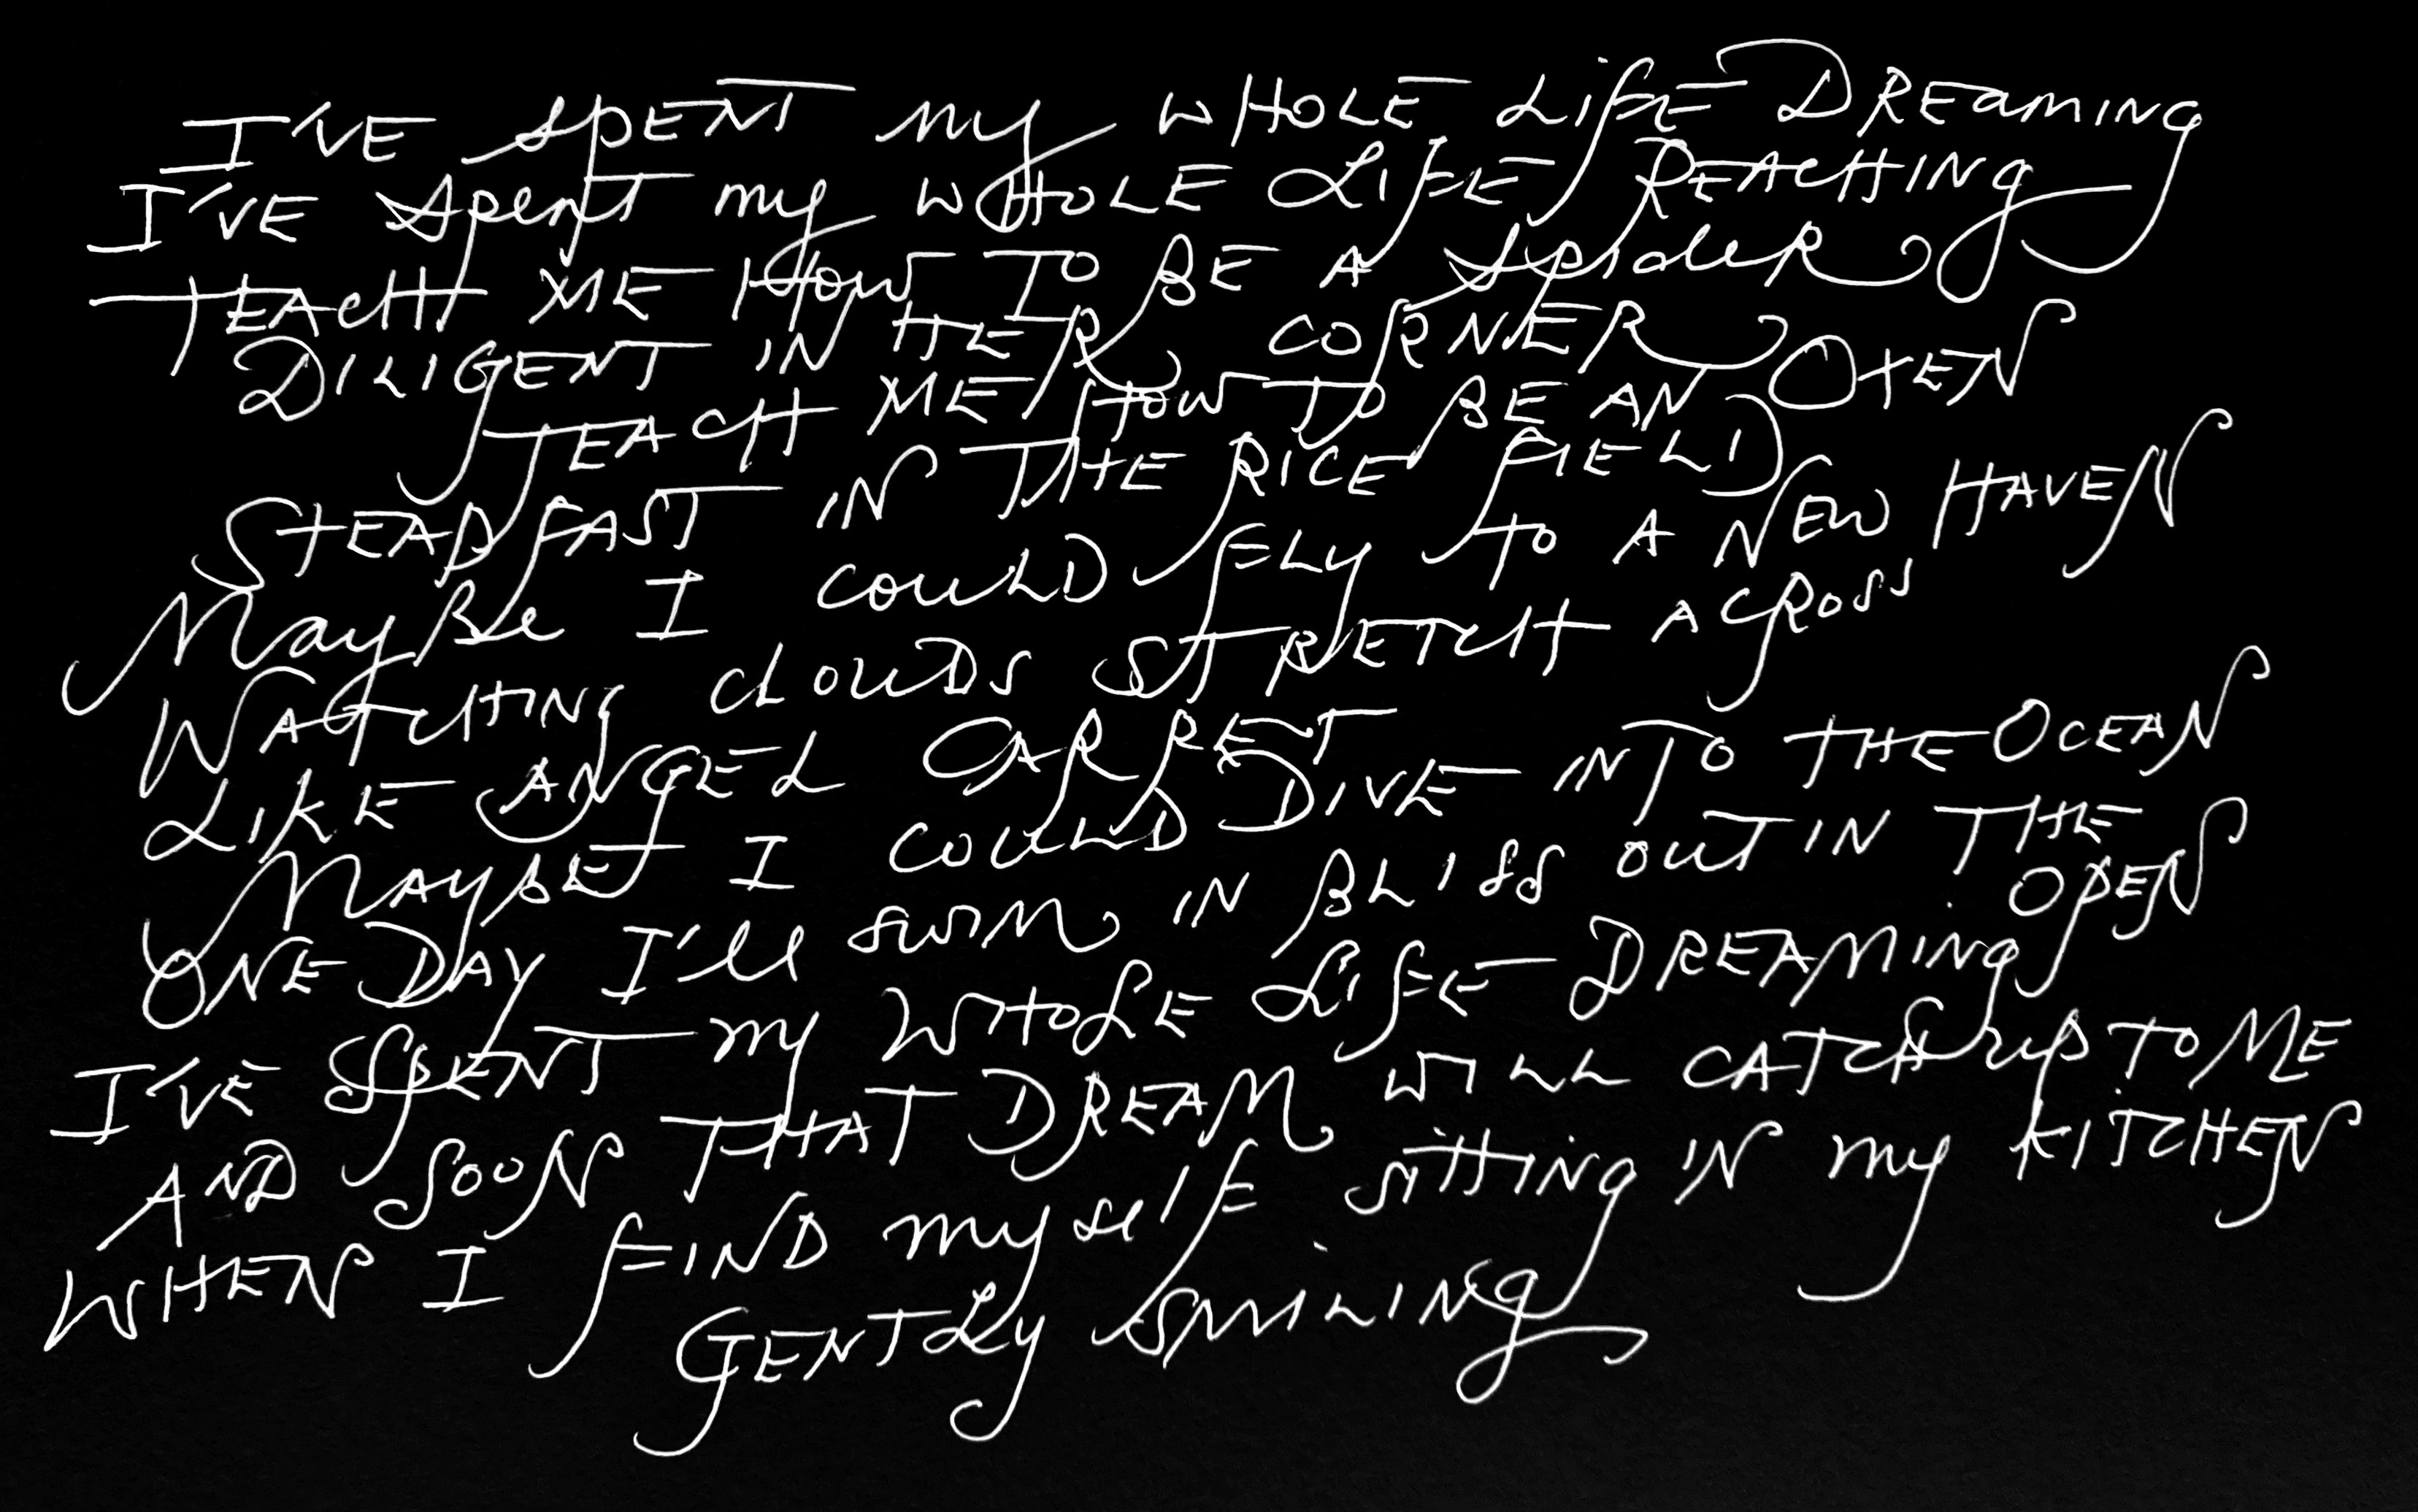 I'VE SPENT my WHOLE LIFE DREAMING
I'VE SPENT my WHOLE LIFE REACHING
TEACH ME HOW TO BE A SpideR
DILIGENT IN HER CORNER
TEACH ME HOW TO BE AN OXEN
STEADFAST IN THE RICE FIELD
MayBe I COULD FLY TO A NEW HAVEN
WATCHING CLOUDS STRETCH ACROSS
LIKE ANGEL CARPET
MAYBE I COULD DIVE INTO THE OCEAN
ONE DAY I'll SWIM IN BLISS OUT IN THE OPEN
I'VE SPENT my WHOLE LIFE DREAMING
AND SOON THAT DREAM WILL CATCH UP TO ME
WHEN I FIND myself SITTING IN my KITCHEN
GENTLY SMILING